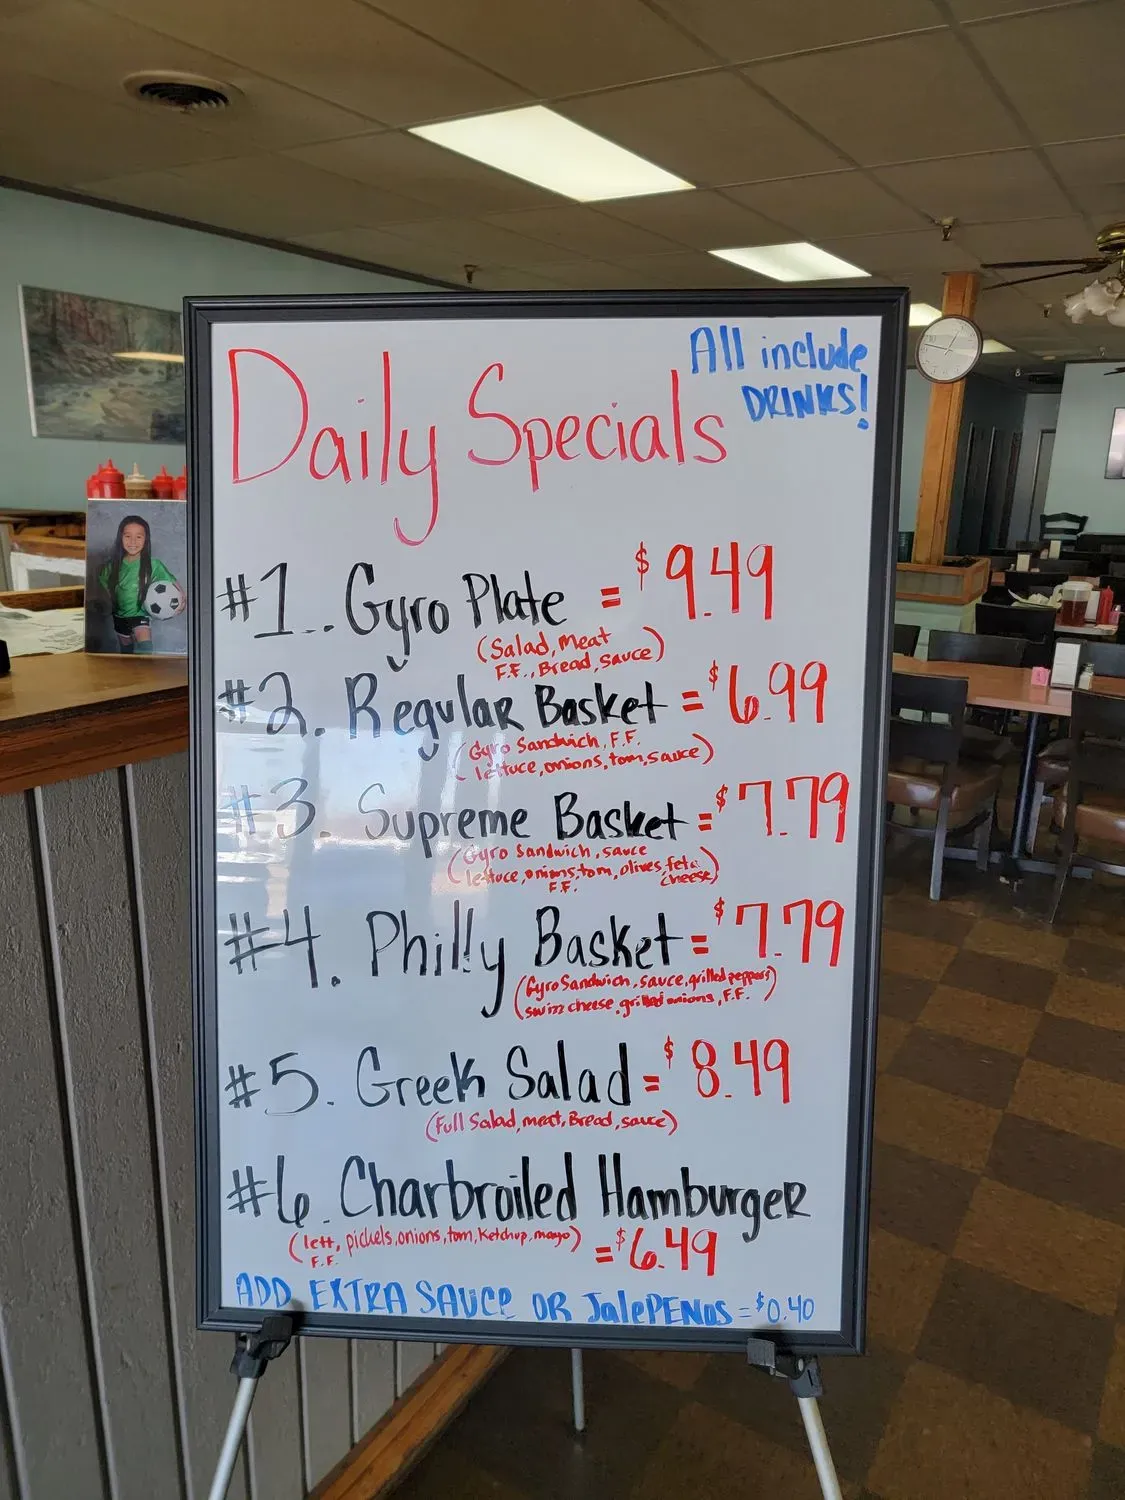 All include
DRINKS!
Daily Specials
#1.. Gyro Plate = $9.49
(Salad, Meat
F.F., Bread, sauce)
#2. Regular Basket = $6.99
(Gyro Sandwich, F.F.
lettuce, onions, tom, sauce)
#3. Supreme Basket = $7.79
(Gyro Sandwich, sauce
lettuce, onions, tom, olives, feta
F.F. cheese)
#4. Philly Basket = $7.79
(Gyro Sandwich, sauce, grilled peppers)
(swiss cheese, grilled onions, F.F.
#5. Greek Salad = $8.49
(Full Salad, meat, Bread, sauce)
#6. Charbroiled Hamburger
(lett, pickels, onions, tom, Ketchup, mayo)
F.F.
= $6.49
ADD EXTRA SAUCE OR JalePENos = $0.40